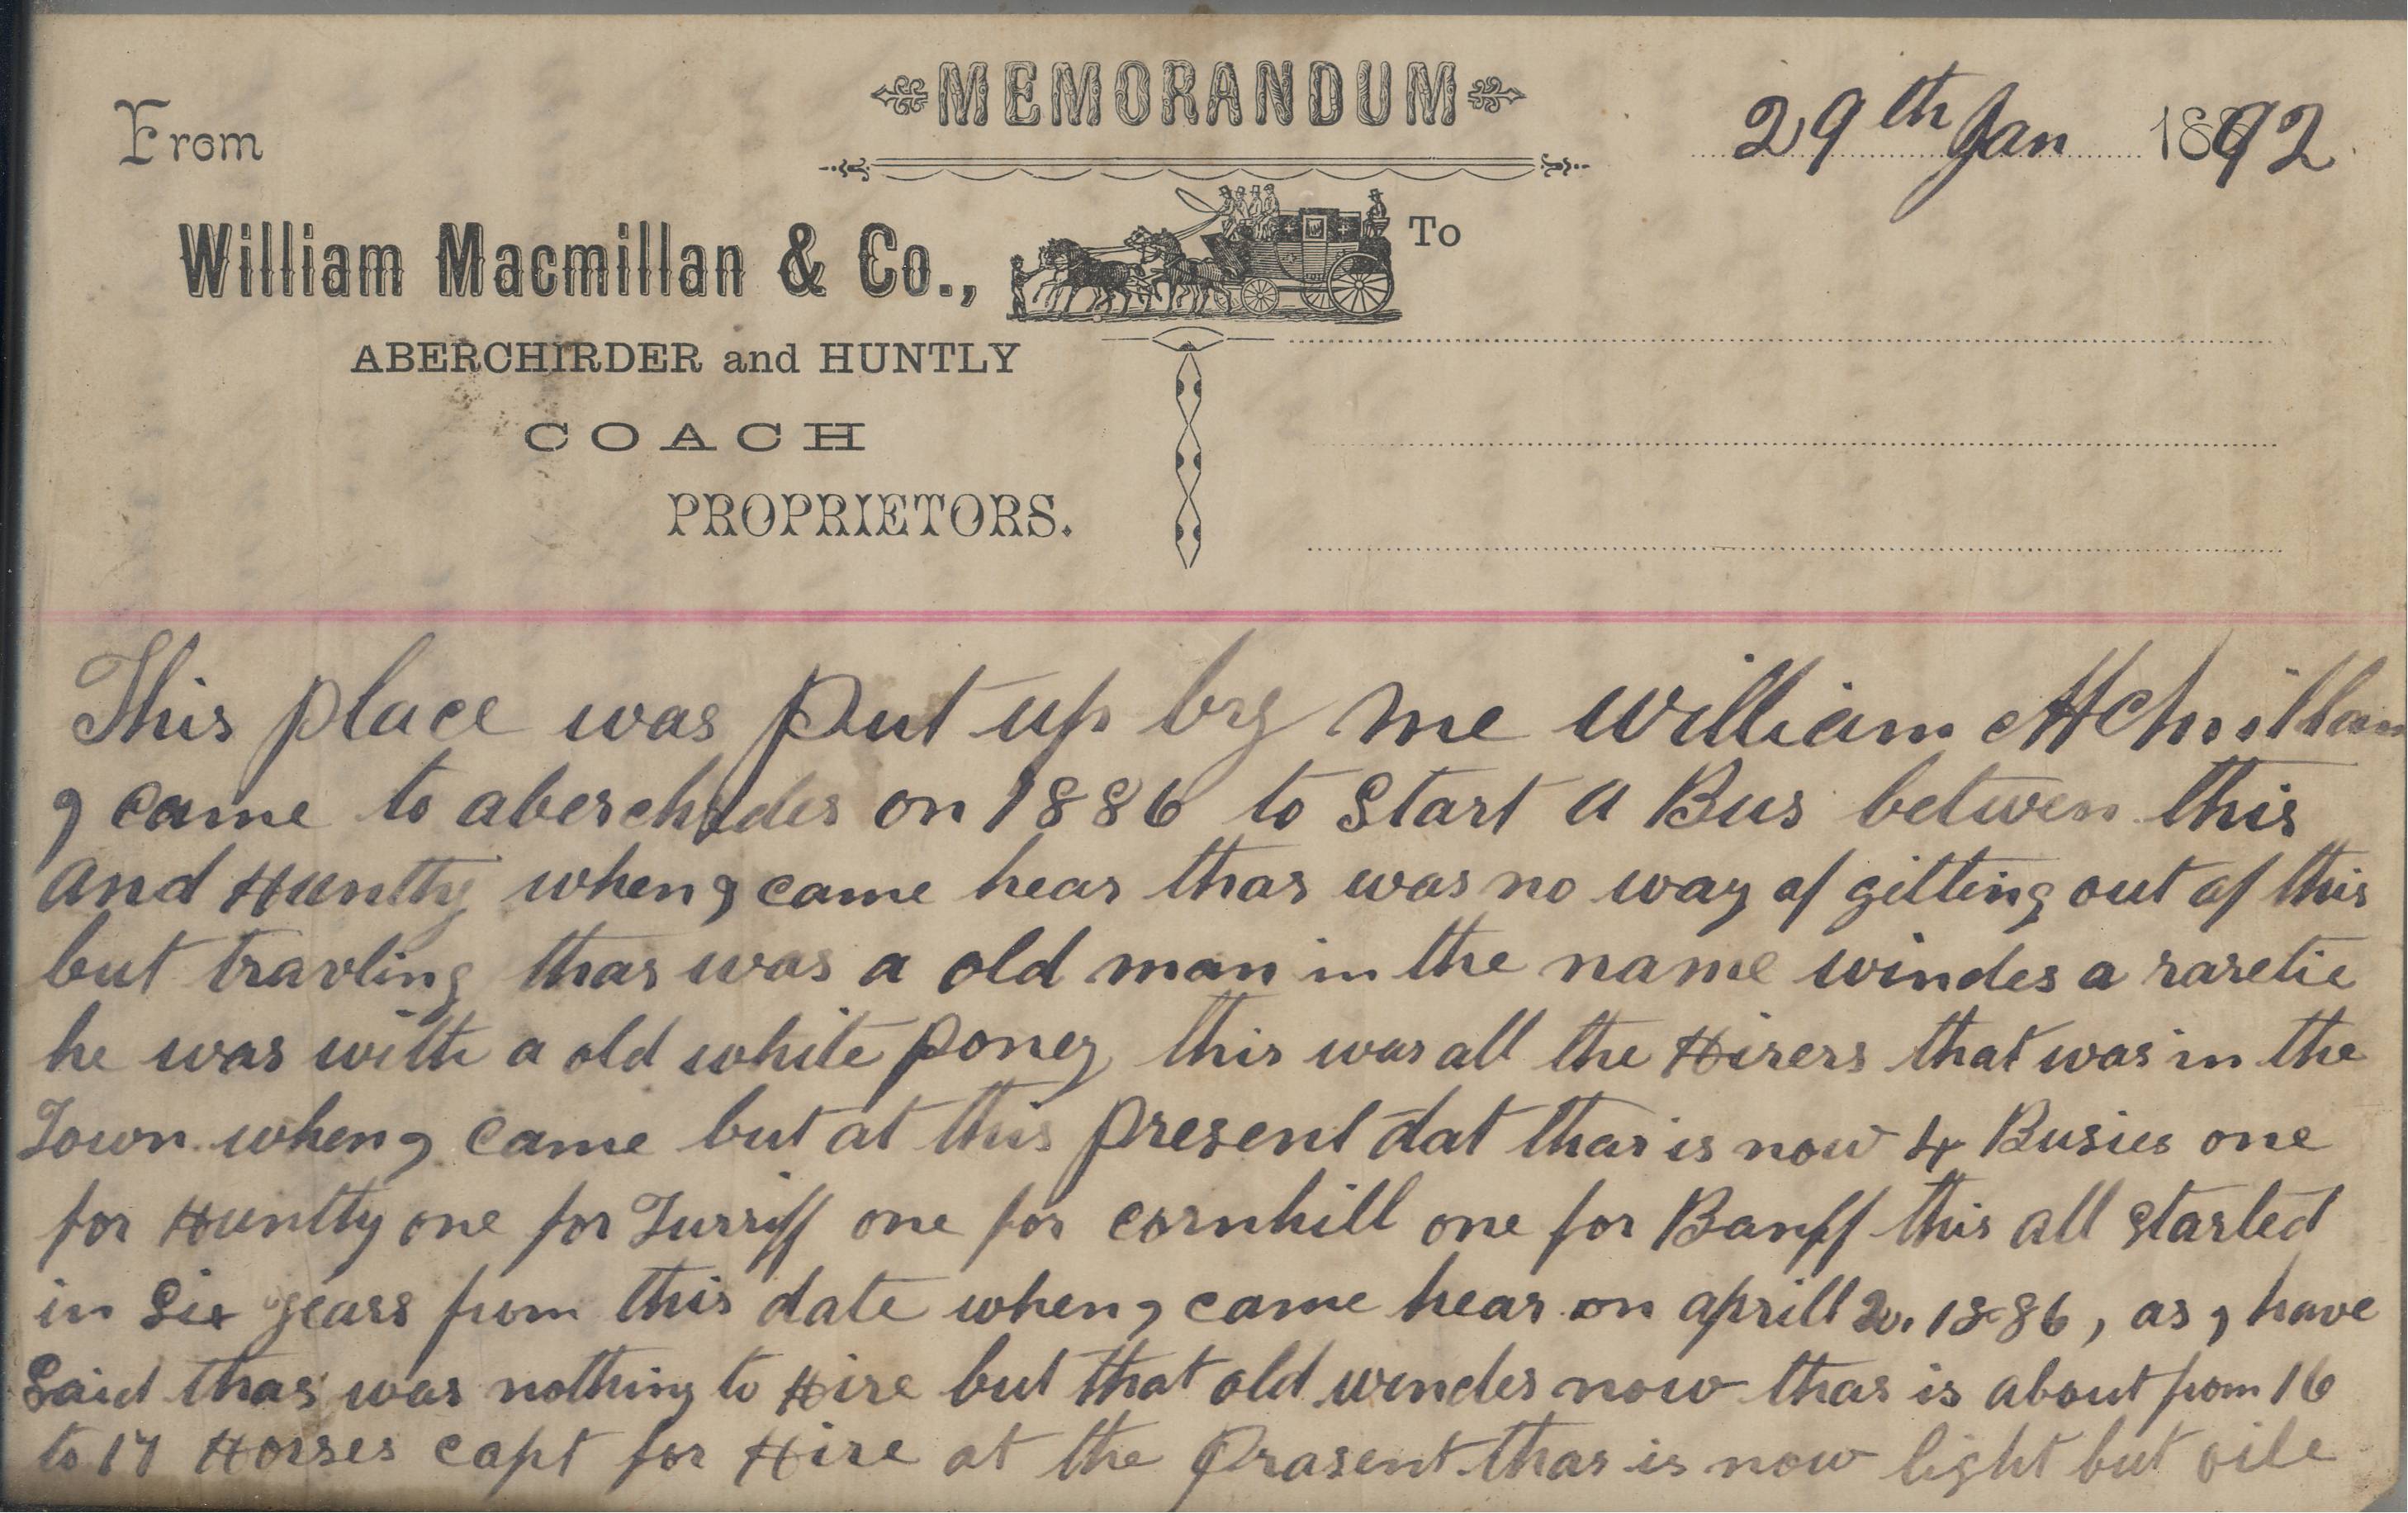 MEMORANDUM
From
29th Jan 1892
William Macmillan & Co.,
To
ABERCHIRDER and HUNTLY
COACH
PROPRIETORS.
This place was put up by me william McMillan
I came to aberchrder on 1886 to Start a Bus betwen this
and Huntly when I came hear thar was no way of gitting out of this
but travling thar was a old man in the name winder a raretie
he was with a old white Poney this was all the Hirers that was in the
Town when I came but at this Present dat thar is now 4 Busies one
for Huntly one for Turriff one for cornhill one for Banff this all started
in Six years from this date when I came hear on aprill 20. 1886, as I have
Said thar was nothing to Hire but that old winder now thar is about from 16
to 17 Horses capt for Hire at the Prasent thar is now light but oile